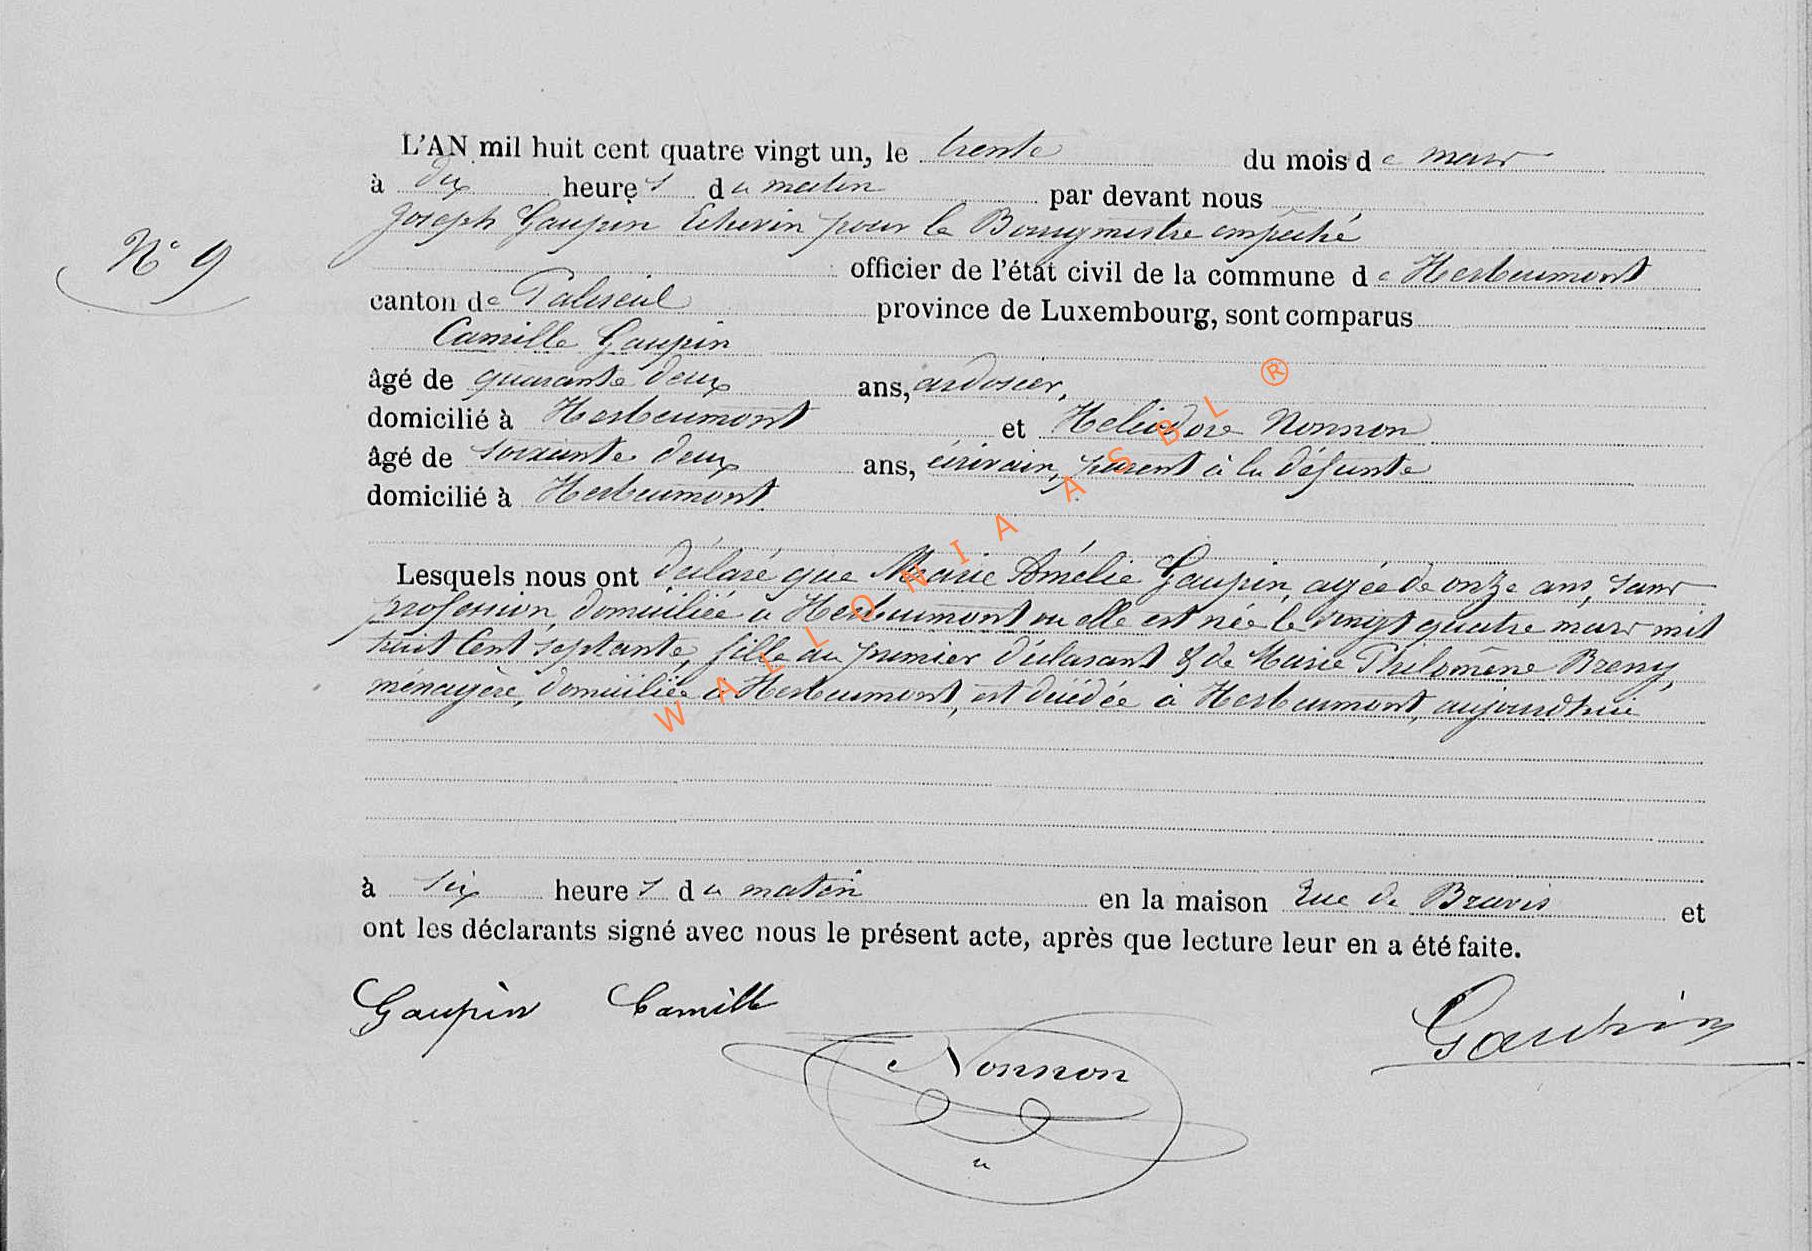 L'AN mil huit cent quatre vingt un, le trente du mois de mars
à dix heures du matin par devant nous
Joseph Gaupin Echevin pour le Bourgmestre empêché
N° 9
officier de l'état civil de la commune de Herbeumont
canton de Paliseul province de Luxembourg, sont comparus
Camille Gaupin
âgé de quarante deux ans, ardosier,
domicilié à Herbeumont et Heliodore Nonnon
âgé de soixante deux ans, écrivain, parent à la défunte
domicilié à Herbeumont.
Lesquels nous ont déclaré que Marie Amélie Gaupin, agée de onze ans, sans
profession, domiciliée à Herbeumont ou elle est née le vingt quatre mars mil
huit Cent septante, fille du premier déclarant & de Marie Philomène Breny,
ménagère, domiciliée à Herbeumont, est décédée à Herbeumont, aujourdhui
à six heures du matin en la maison Rue de Bravis et
ont les déclarants signé avec nous le présent acte, après que lecture leur en a été faite.
Gaupin Camille
Gaupin
Nonnon
WALLONIA ASBL ®